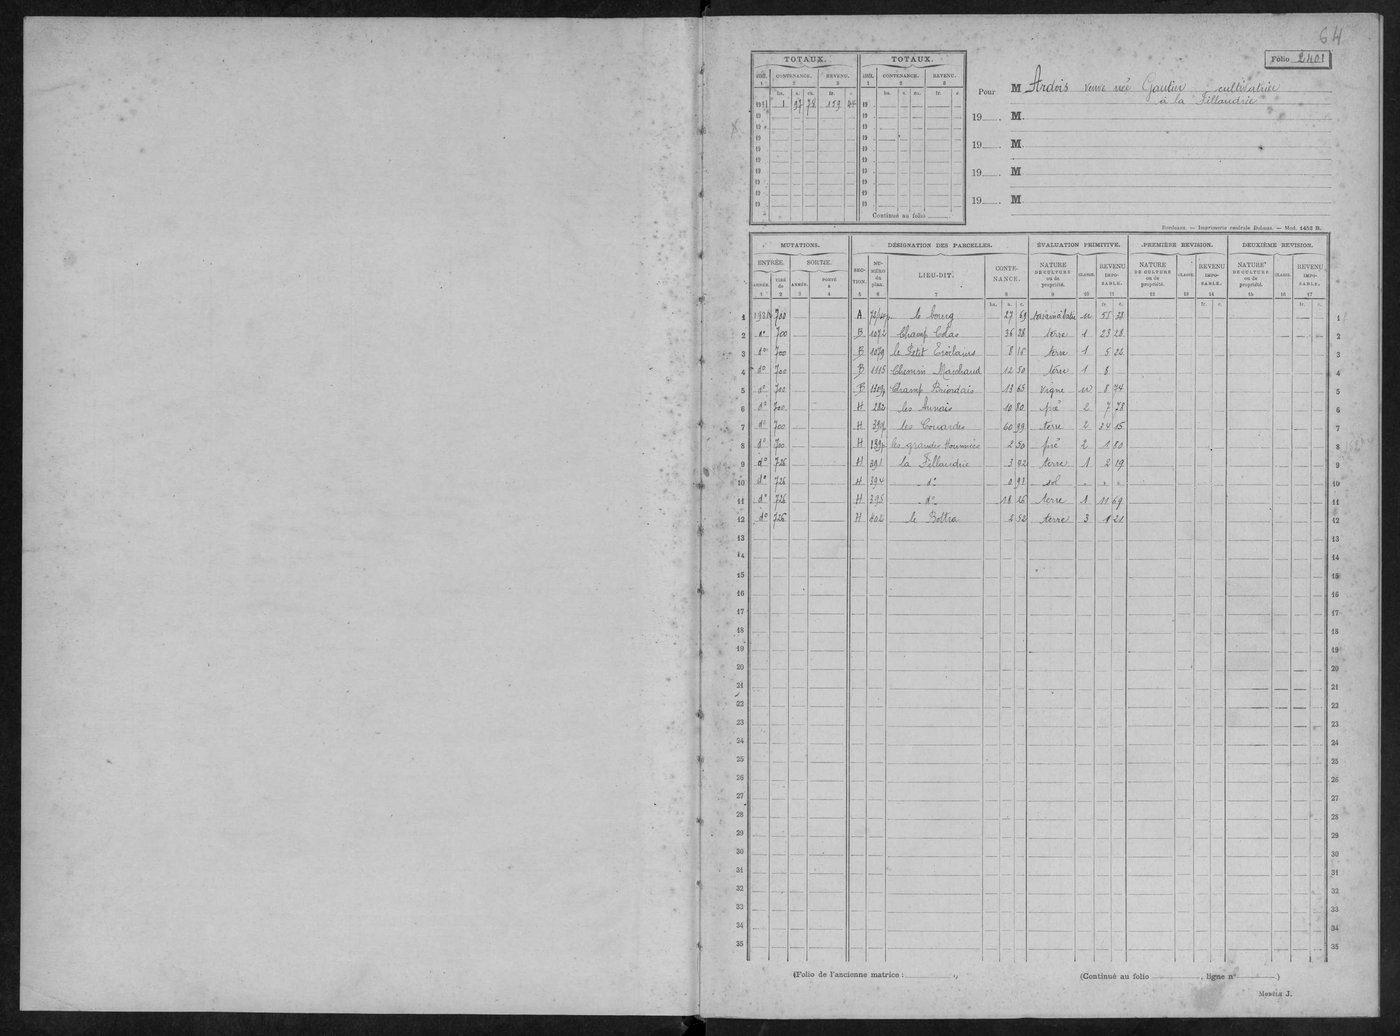 64
Folio 2401
TOTAUX. TOTAUX.
CONTENANCE. REVENU. CONTENANCE. REVENU.
1 2 3 1 2 3
ha. a. ca. fr. c. ha. a. ca. fr. c.
1 97 78 159 44
Continué au folio
Pour M Ardois veuve née Gautier cultivatrice
à la Fillaudrie
19 M.
19 M.
19 M
19 M
Bordeaux. — Imprimerie centrale Delmas. — Mod. 1452 B.
MUTATIONS. DÉSIGNATION DES PARCELLES. ÉVALUATION PRIMITIVE. PREMIÈRE REVISION. DEUXIÈME REVISION.
ENTRÉE. SORTIE.
ANNÉE. TIRÉ de ANNÉE. PORTÉ à SECTION. NUMÉRO du plan. LIEU-DIT. CONTENANCE. NATURE DE CULTURE ou de propriété. CLASSE. REVENU IMPOSABLE. NATURE DE CULTURE ou de propriété. CLASSE. REVENU IMPOSABLE. NATURE DE CULTURE ou de propriété. CLASSE. REVENU IMPOSABLE.
1 2 3 4 5 6 7 8 9 10 11 12 13 14 15 16 17
ha. a. c. fr. c. fr. c. fr. c.
1 700 A le bourg 27 69 u 55 38 1
2 do 700 B 1072 Champ Colas 36 38 terre 1 23 28 2
3 do 700 B 1079 le Petit 8 16 terre 1 5 22 3
4 do 700 B 1115 Chemin Marchand 12 50 terre 1 8 4
5 do 700 B Champ Briordais 13 65 vigne u 8 74 5
6 do 700 H 282 les Aunais 10 80 pré 2 7 78 6
7 do 700 H les Couardes 60 99 terre 2 34 15 7
8 do 700 H les grandes 2 50 pré 2 1 80 8
9 do 726 H 391 la Fillaudrie 3 92 terre 1 2 19 9
10 do 726 H 394 do 0 91 sol 10
11 do 726 H 395 do 18 26 terre 1 11 69 11
12 do 726 H 402 le Bottra 2 52 terre 3 1 21 12
13 13
14 14
15 15
16 16
17 17
18 18
19 19
20 20
21 21
22 22
23 23
24 24
25 25
26 26
27 27
28 28
29 29
30 30
31 31
32 32
33 33
34 34
35 35
(Folio de l'ancienne matrice : ) (Continué au folio , ligne n° )
MODÈLE J.